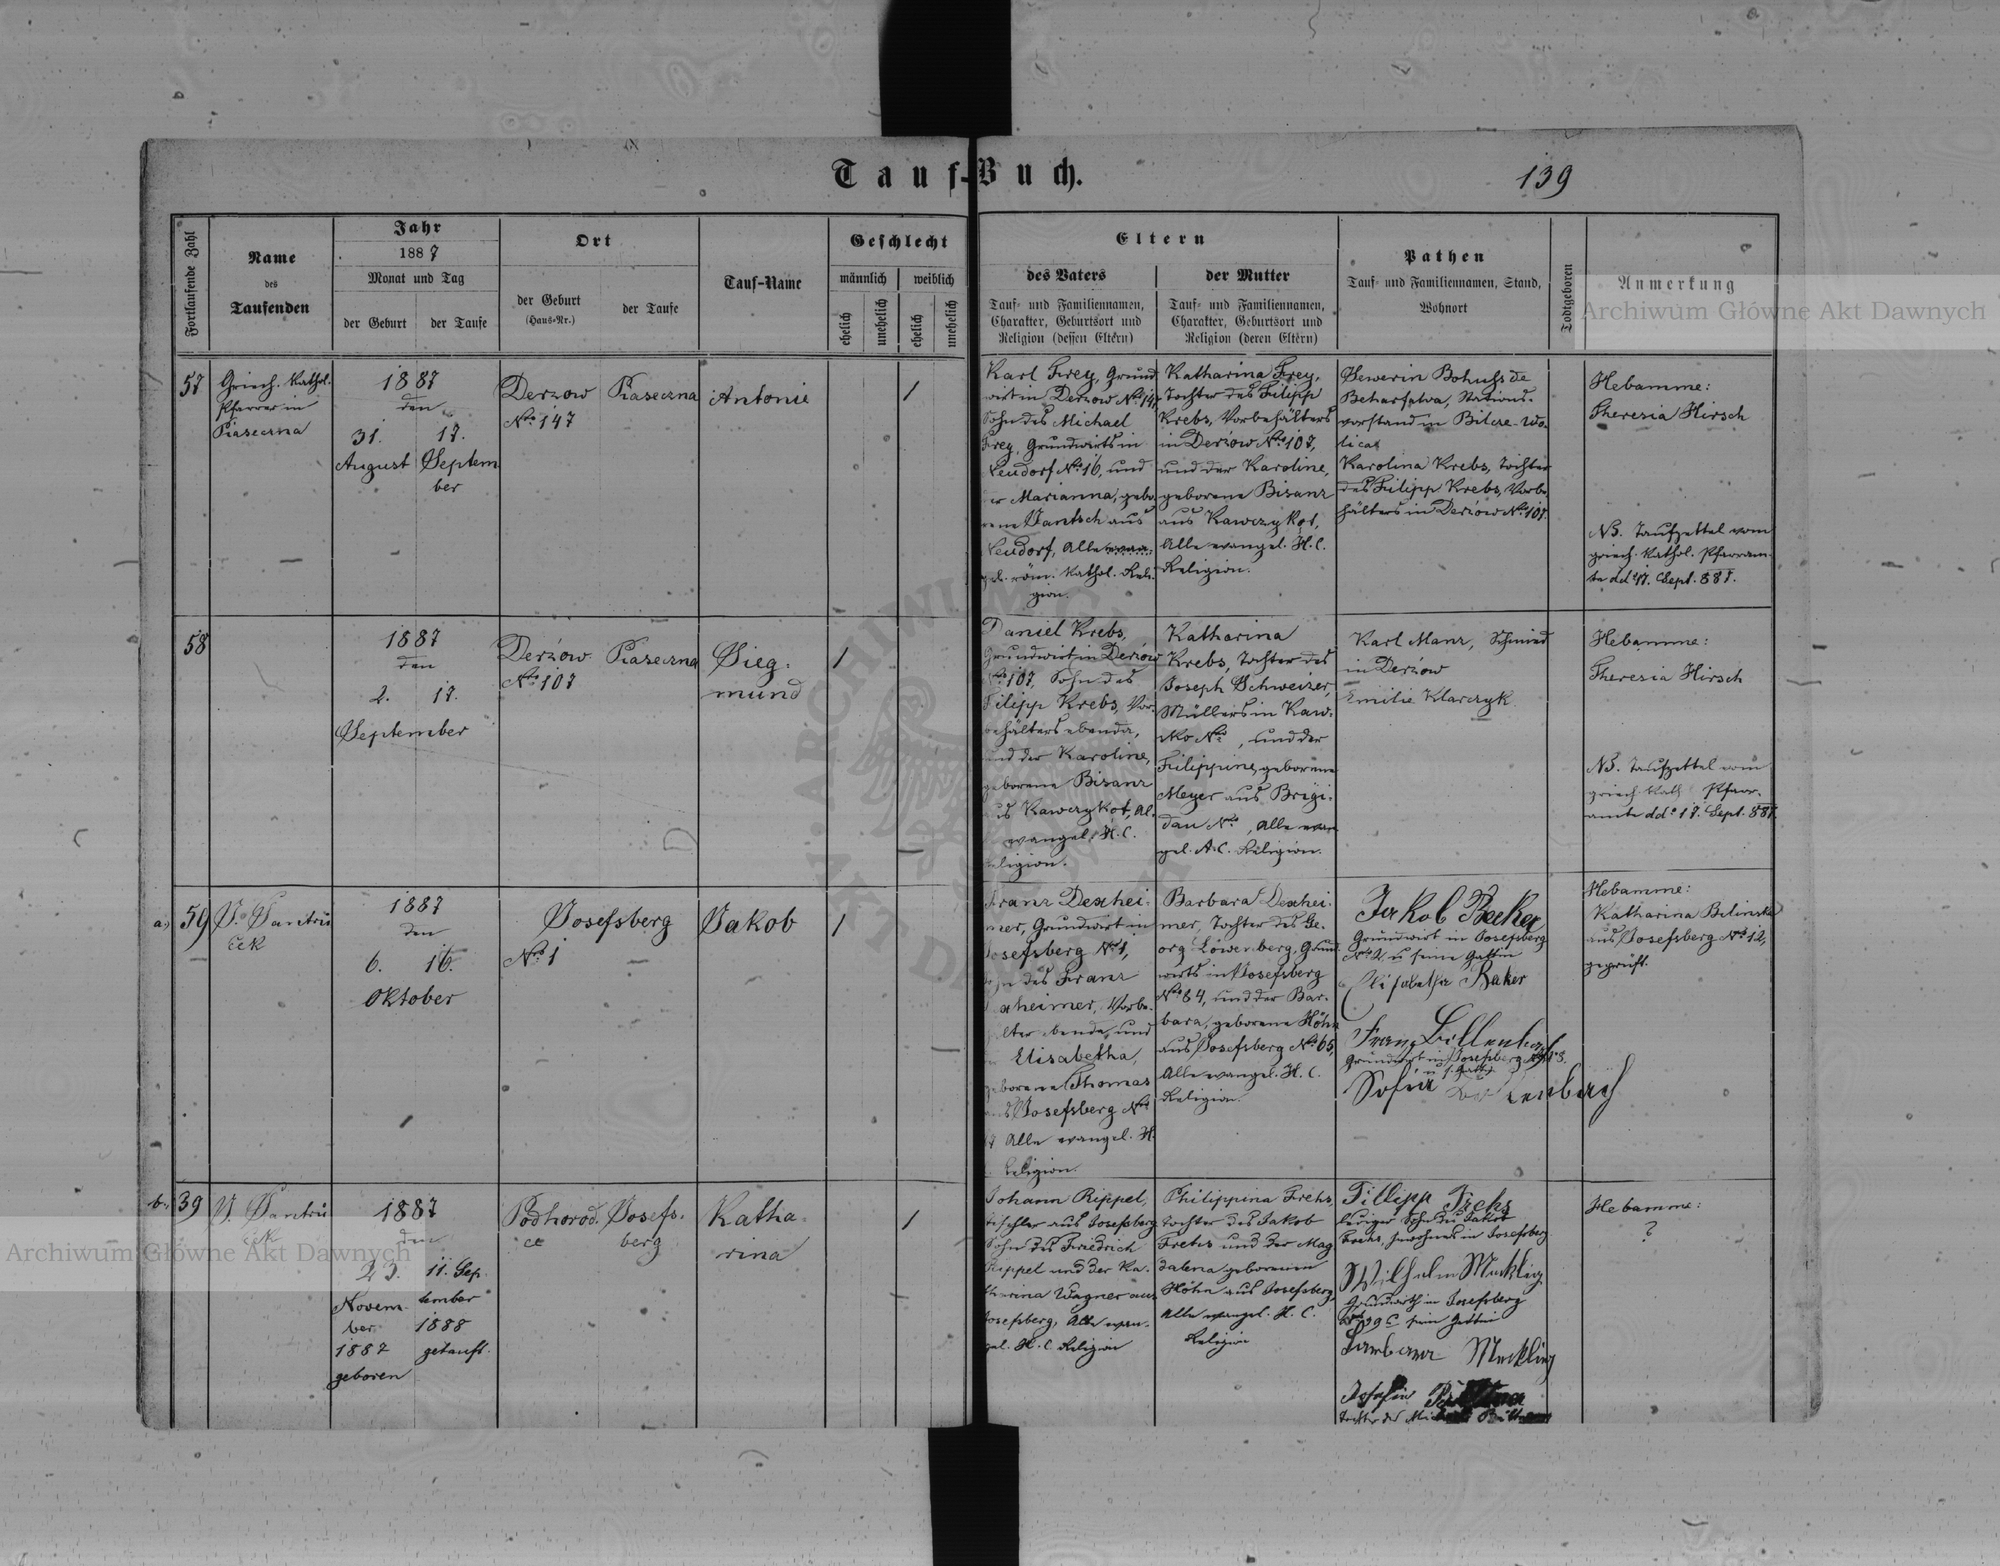 Tauf-Buch.
139
Fortlaufende Zahl
Name
des
Taufenden
Jahr
1887
Monat und Tag
der Geburt
der Taufe
Ort
der Geburt
(Haus-Nr.)
der Taufe
Tauf-Name
Geschlecht
männlich
weiblich
ehelich
unehelich
ehelich
unehelich
Eltern
des Vaters
Tauf- und Familiennamen,
Charakter, Geburtsort und
Religion (dessen Eltern)
der Mutter
Tauf- und Familiennamen,
Charakter, Geburtsort und
Religion (deren Eltern)
Pathen
Tauf- und Familiennamen, Stand,
Wohnort
Todtgeboren
Anmerkung
Archiwum Główne Akt Dawnych
57
Griech. Kathol.
Pfarrer in
Piaseczna
1887
den
31. 17.
August Septem
ber
Derzow Piaseczna
No 147
Antonie
1
Karl Frey, Grund
wirt in Derzow No 147
Sohn des Michael
Frey, Grundwirts in
Neudorf No 16, und
der Marianna, gebo
rene Jantsch aus
Neudorf, Alle evan.
gel. röm. Kathol. Reli
gion.
Katharina Frey,
Tochter des Filipp
Krebs, Vorbehälters
in Derzow No 107,
und der Karoline,
geborene Bisanz
aus Kawczykot,
Alle evangel. H. C.
Religion.
Sewerin Bohuss de
Stations-
vorstand in Bilcze-Wo-
lica
Karolina Krebs, Tochter
des Filipp Krebs, Vorbe
hälters in Derzow No 107.
Hebamme:
Theresia Hirsch
NB. Taufzettel vom
griech. Kathol. Pfarram-
te ddo 17. Sept. 887.
58
1887
den
2. 17.
September
Derzow Piaseczna
No 107
Sieg-
mund
1
Daniel Krebs,
Grundwirt in Derzow
No 107, Sohn des
Filipp Krebs, Vor-
behälters ebenda,
und der Karoline,
geborene Bisanz
aus Kawczykot, Al.
evangel. H. C.
Religion.
Katharina
Krebs, Tochter des
Joseph Schweizer,
Müllers in Kaw-
sko No , und der
Filippine, geborene
Meyer aus Brigi-
dau No , Alle evan
gel. A. C. Religion.
Karl Manz, Schmied
in Derzow
Emilie Klarczyk
Hebamme:
Theresia Hirsch
NB. Taufzettel vom
griech. Kath. Pfarr-
amte ddo 17. Sept. 887.
a.) 59
J. Jantrů
ček
1887
den
6. 16.
Oktober
Josefsberg
No 1
Jakob
1
Franz Dexhei-
mer, Grundwirt in
Josefsberg No 1,
Sohn des Franz
Dexheimer, Vorbe-
hälter ebenda, und
Elisabetha,
geborene Thomas
aus Josefsberg No
Alle evangel. H.
Religion.
Barbara Dexhei-
mer, Tochter des Ge-
org Löwenberg, Grund
wirts in Josefsberg
No 84, und der Bar-
bara, geborene Höhn
aus Josefsberg No 65,
Alle evangel. H. C.
Religion.
Jakob Becker
Grundwirt in Josefsberg
No 2 u seine Gattin
Elisabetha Baker
Franz Bollenbach
Grundwirt in Josefsberg
u s. Gattin
Sofia Bollenbach
Hebamme:
Katharina Bilinska
aus Josefsberg No 12,
geprüft.
b.) 39
J. Jantrů
ček
1887
den
23. 11. Sep
Novem tember
ber 1888
1887 getauft.
geboren
Podhorod. Josefs-
ce berg
Katha-
rina
1
Johann Rippel,
Tischler aus Josefsberg
Sohn des Friedrich
Rippel und der Ka-
tharina Wagner aus
Josefsberg, Alle evan-
gel. H. C Religion
Philippina Frehs,
Tochter des Jakob
Frehs und der Mag
dalena geborenen
Höhn aus Josefsberg,
Alle evangel. H. C.
Religion
Fillipp Frehs
lediger Sohn des Jakob
Frehs, in Josefsberg
Wilhelm Mecklieg
Grundwirth in Josefsberg
No 39 c sein Gattin
Barbara Mecklieg
Josefin
Tochter des
Hebamme:
?
Archiwum Główne Akt Dawnych